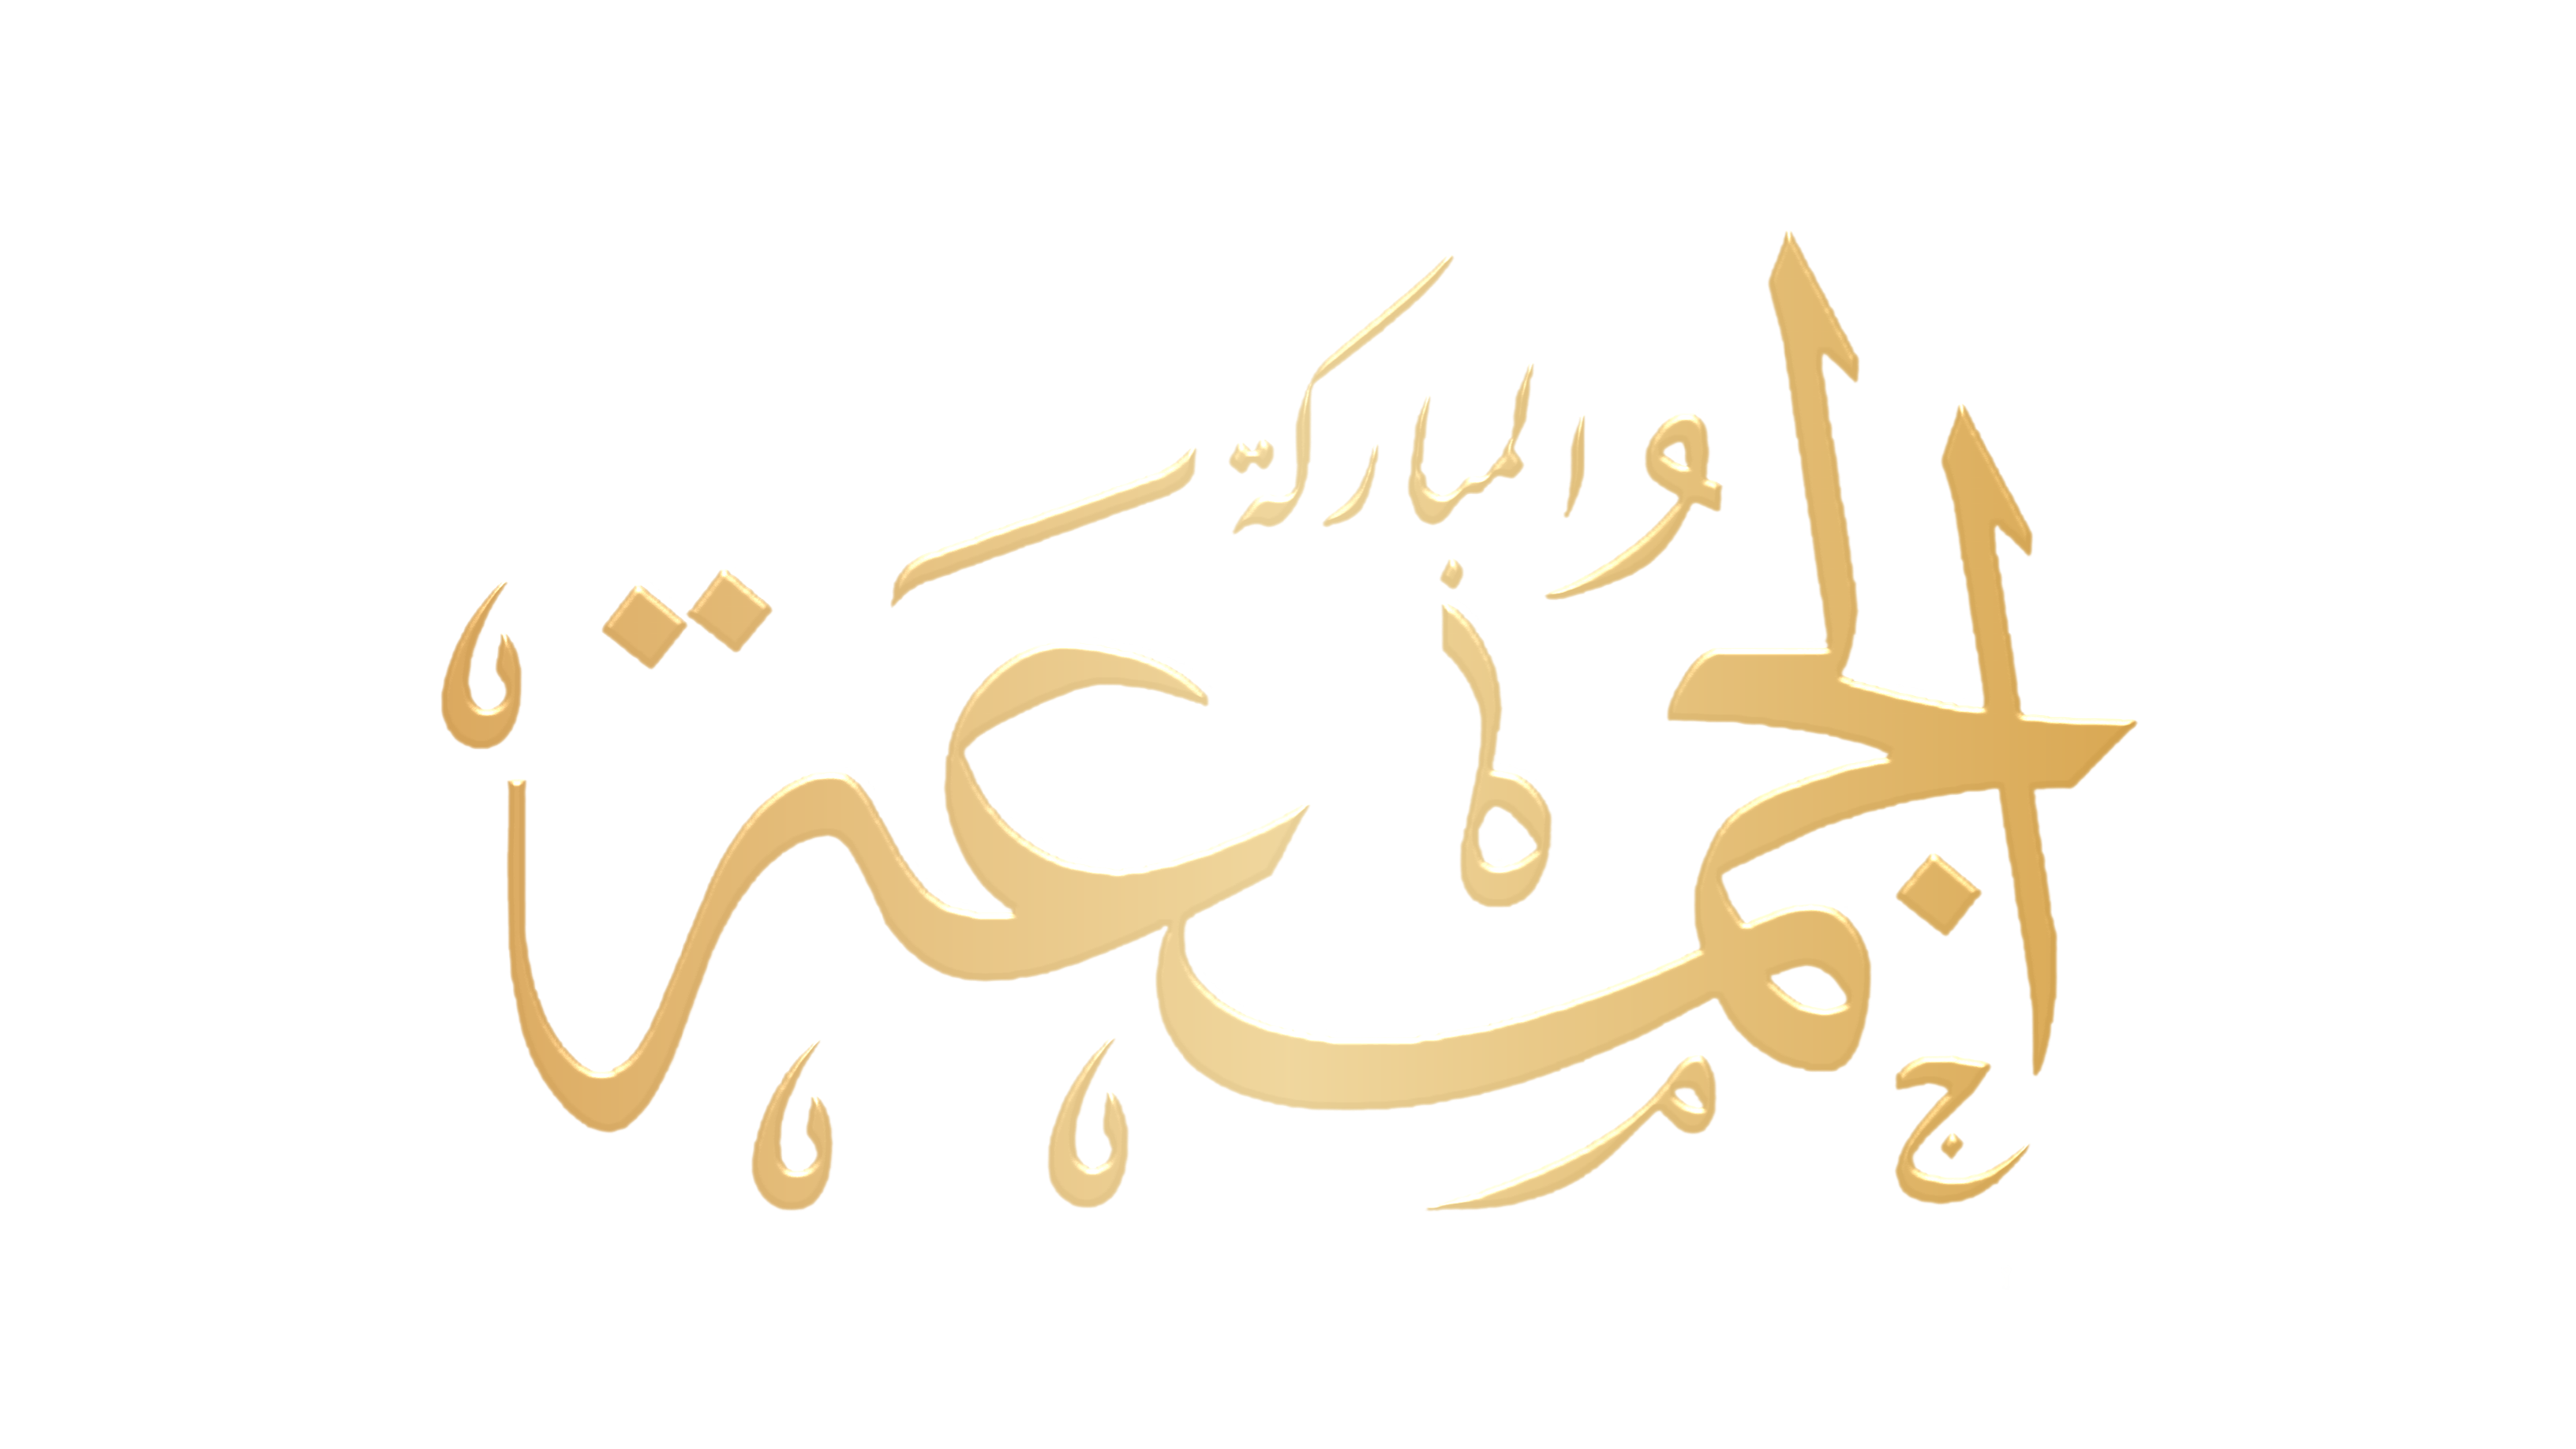 الجمعة
والمباركة